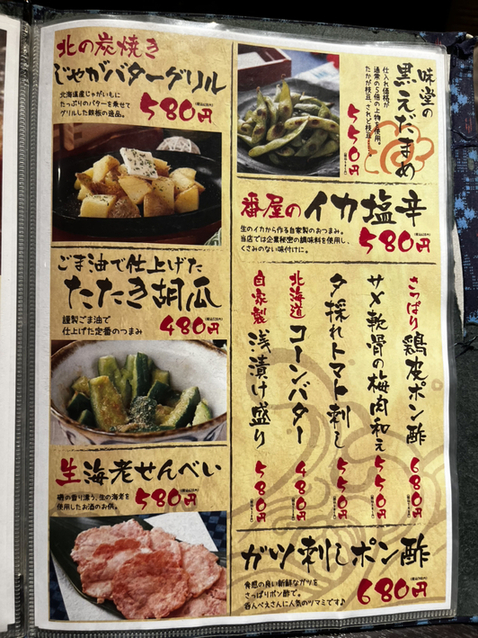 北の炭焼き
じゃがバターグリル
北海道産じゃがいもに
たっぷりのバターを乗せて
グリルした鉄板の逸品。
580円
ごま油で仕上げた
たたき胡瓜
謹製ごま油で
仕上げた定番のつまみ
480円
生海老せんべい
磯の香り漂う、生の海老を
使用したお酒のお供。
580円
味堂の
黒えだまめ
仕入れ価格が
通常の5倍の上物を使用。
たかが枝豆、されど枝豆
550円
番屋のイカ塩辛
生のイカから作る自家製のおつまみ。
当店では企業秘密の調味料を使用し、
くさみのない味付けに。
580円
さっぱり鶏皮ポン酢
680円
サメ軟骨の梅肉和え
550円
夕採れトマト刺し
550円
北海道コーンバター
480円
自家製浅漬け盛り
580円
ガツ刺しポン酢
食感の良い新鮮なガツを
さっぱりポン酢で。
呑んべえさんに人気のツマミです♪
680円